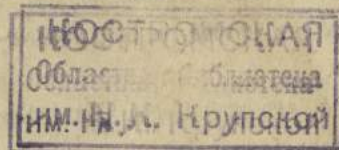 КОСТРОМСКАЯ
Областная библиотека
им. Н.К. Крупской